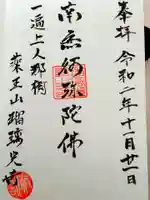 奉拝 令和二年十一月廿一日
南無阿弥陀佛
一遍上人那智
薬王山瑠璃光寺